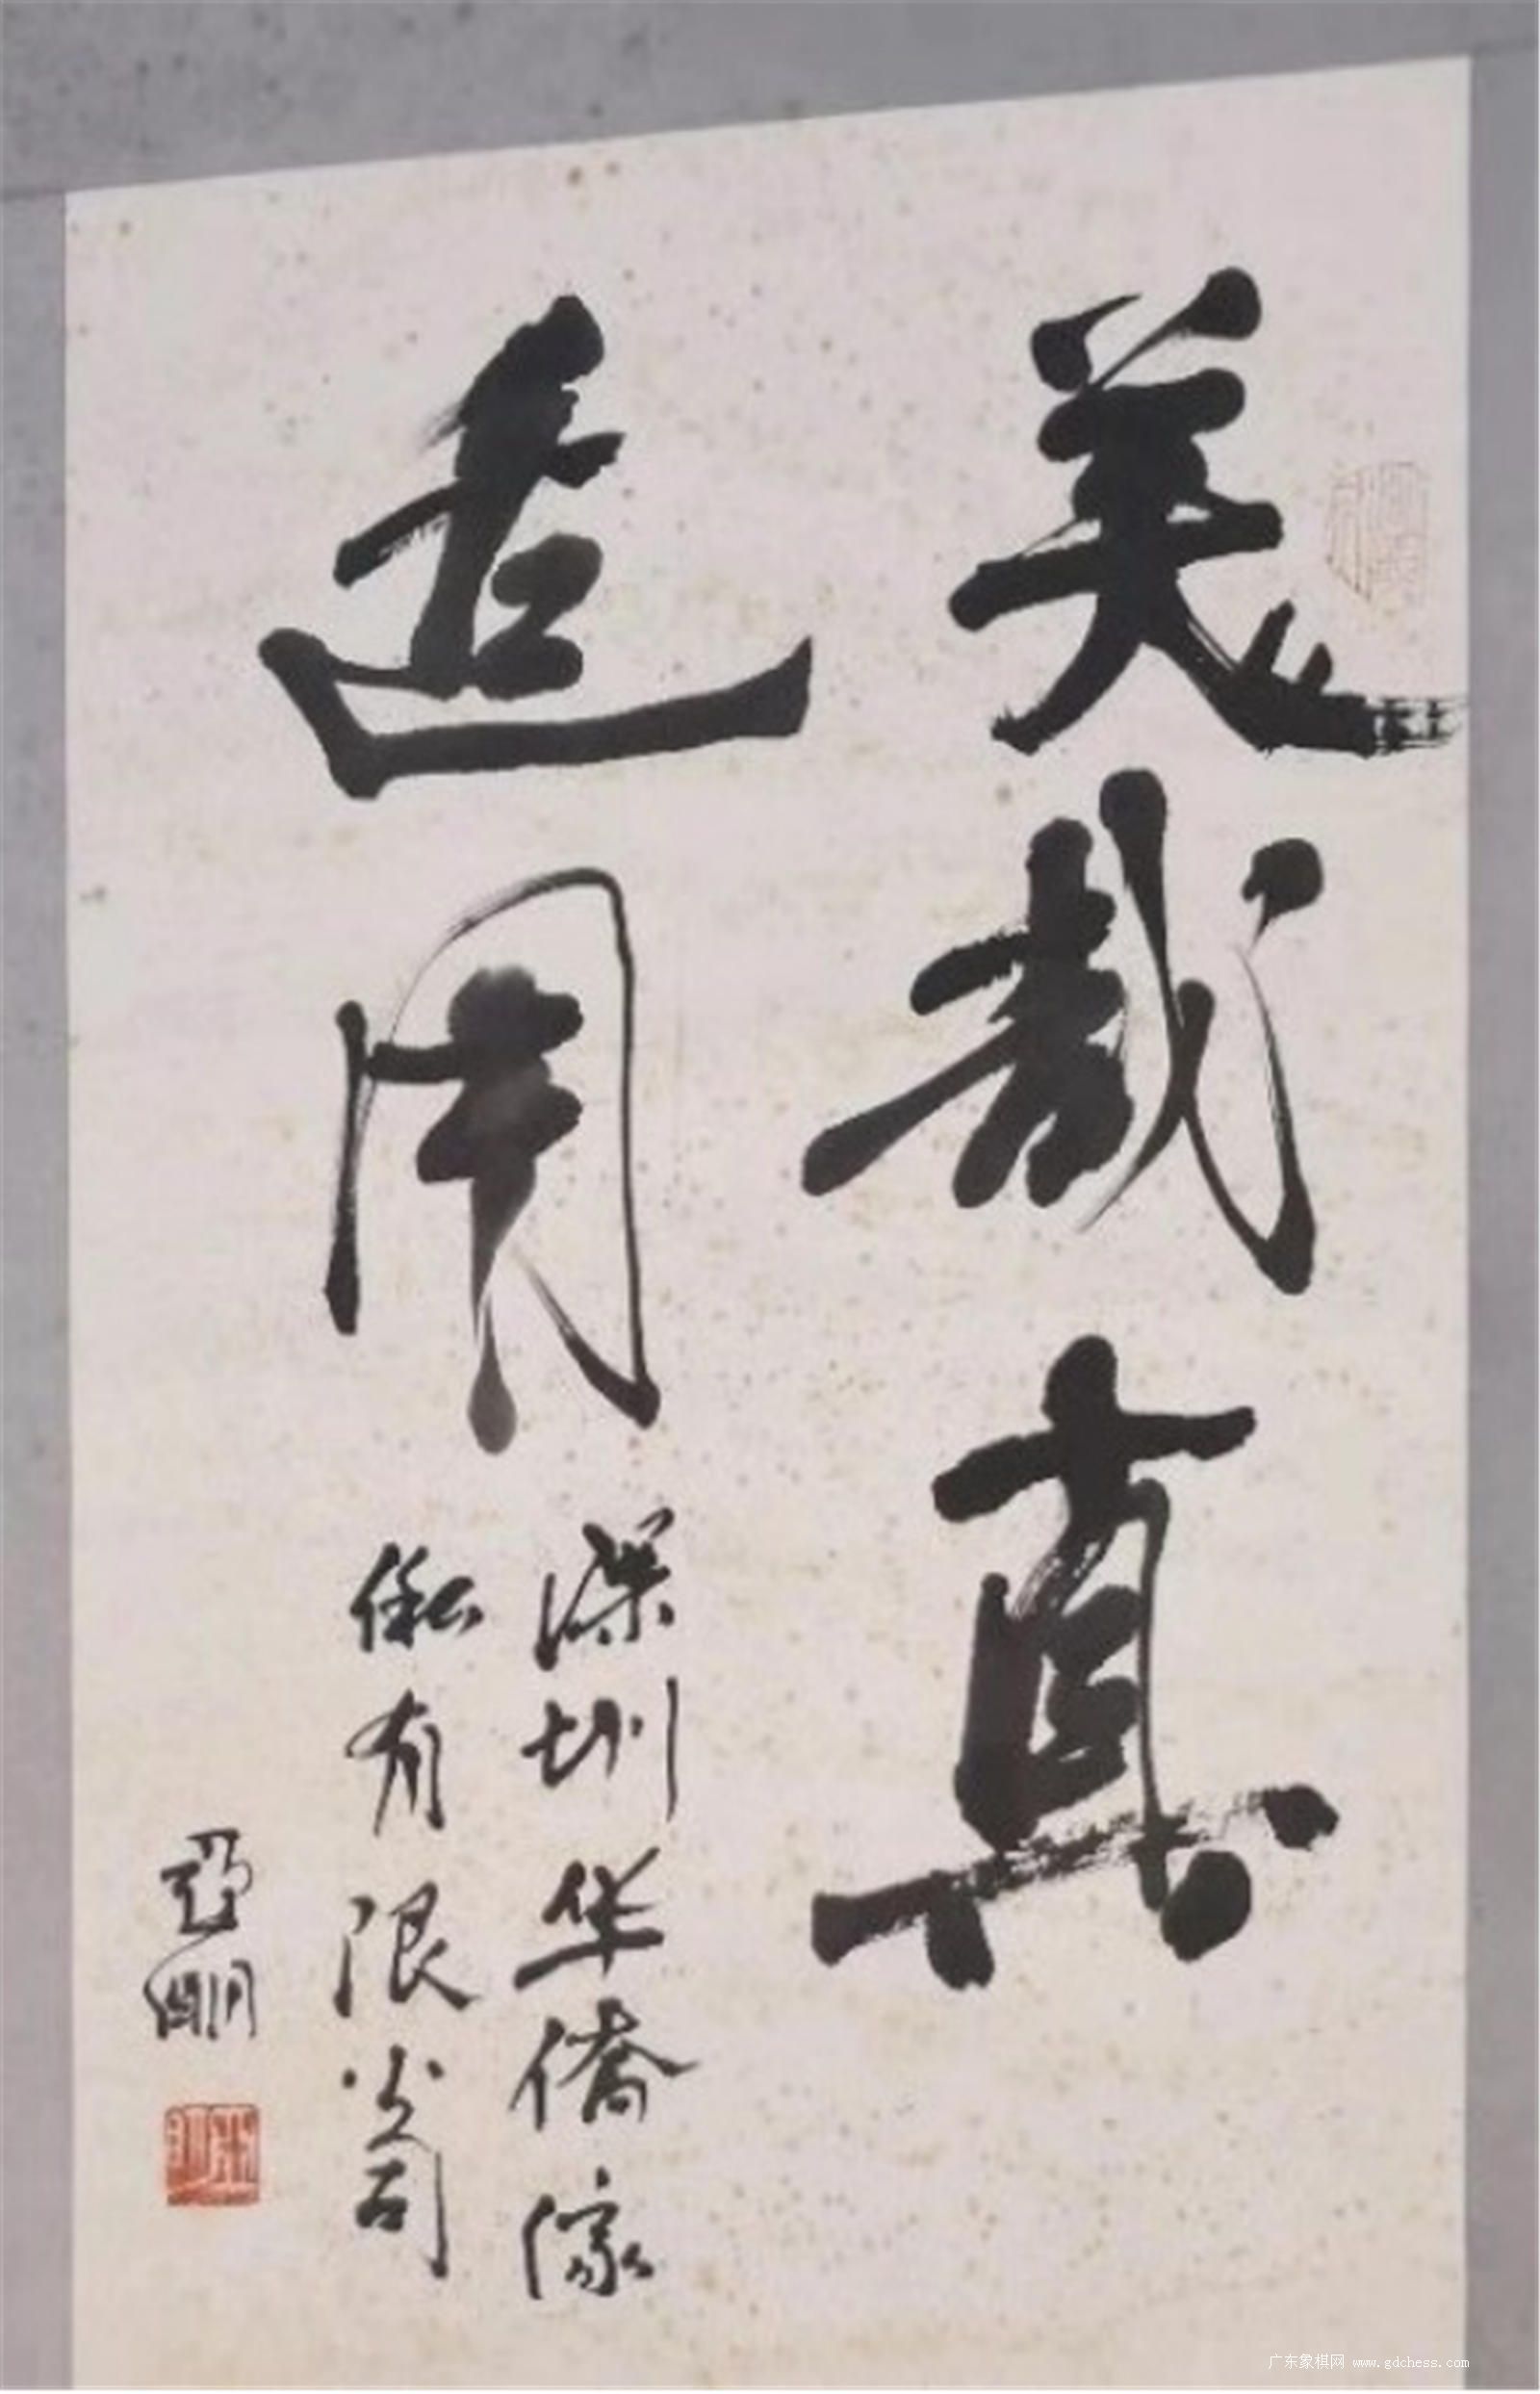 美哉真
适用
深圳华侨傢
俬有限公司
亚明
广东象棋网 www.gdchess.com